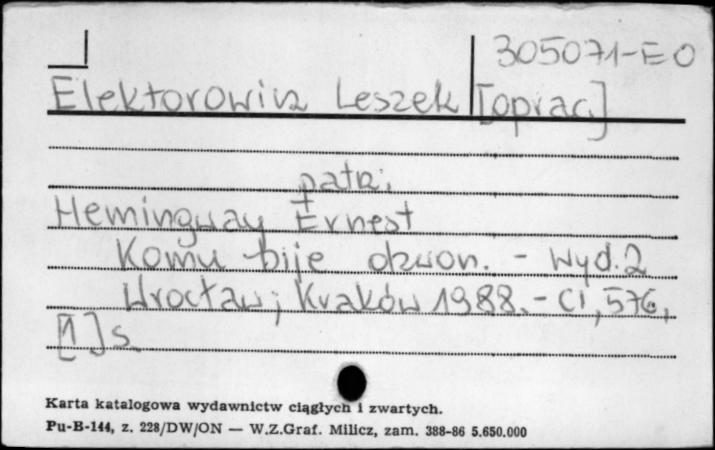 305071-EO
Elektorowicz Leszek [oprac.]
patrz:
Hemingway Ernest
Komu bije dzwon. - Wyd. 2
Wrocław; Kraków 1988. - CI, 576,
[1] s.
Karta katalogowa wydawnictw ciągłych i zwartych.
Pu-B-144, z. 228/DW/ON — W.Z.Graf. Milicz, zam. 388-86 5.650.000